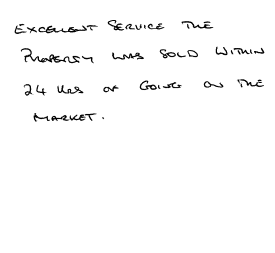 EXCELLENT SERVICE THE
PROPERTY WAS SOLD WITHIN
24 HRS OF GOING ON THE
MARKET.